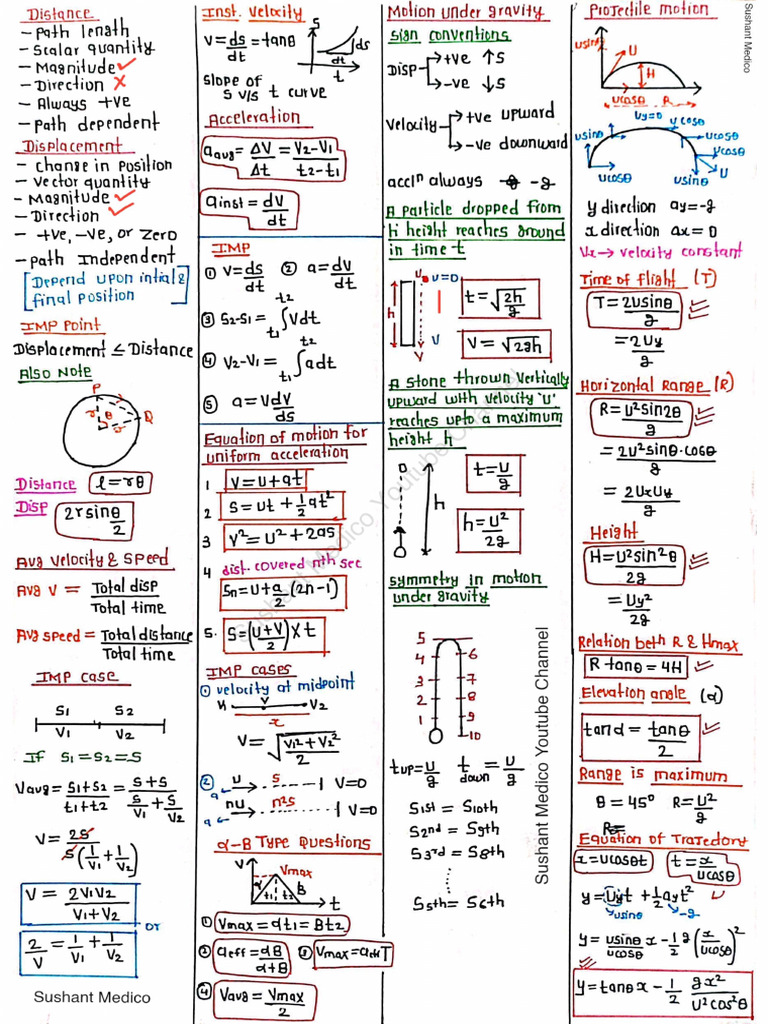 Distance
- Path length
- Scalar quantity
- Magnitude ✓
- Direction ✗
- Always +ve
- Path dependent
Displacement
- Change in position
- Vector quantity
- Magnitude ✓
- Direction ✓
- +ve, -ve, or zero
- Path Independent
[Depend upon intial &
final position]
IMP Point
Displacement ≤ Distance
Also Note
P
r θ r
Q
Distance l = rθ
Disp 2r sin θ/2
Avg velocity & speed
Avg V = Total disp / Total time
Avg speed = Total distance / Total time
IMP case
S1 S2
V1 V2
If S1 = S2 = S
Vavg = S1+S2 / t1+t2 = S+S / S/V1 + S/V2
V = 2S / S(1/V1 + 1/V2)
V = 2V1V2 / V1+V2
or
2/V = 1/V1 + 1/V2
Sushant Medico
Inst. velocity
V = ds/dt = tanθ
S
ds
dt
t
slope of
S v/s t curve
Acceleration
aavg = ΔV/Δt = V2-V1 / t2-t1
ainst = dV/dt
IMP
① V = ds/dt ② a = dV/dt
③ S2-S1 = t1∫t2 Vdt
④ V2-V1 = t1∫t2 adt
⑤ a = VdV/ds
Equation of motion for
uniform acceleration
1 V = U + at
2 S = ut + 1/2 at²
3 V² = U² + 2as
4 dist. covered nth sec
Sn = U + a/2 (2n-1)
5. S = (U+V / 2) × t
IMP cases
① velocity at midpoint
V V2
x
V = √(V1²+V2² / 2)
② u S V=0
a
nu n²S V=0
a
α-B Type Questions
V
Vmax
α B
t1 t2
t
① Vmax = αt1 = Bt2
② aeff = αB / α+B ③ Vmax = aeff T
④ Vavg = Vmax / 2
Motion under gravity
sign conventions
Disp +ve ↑S
-ve ↓S
Velocity +ve upward
-ve downward
accln always -g
A particle dropped from
h height reaches ground
in time t
h
u=0
V
t = √(2h/g)
V = √(2gh)
A stone thrown vertically
upward with velocity 'u'
reaches upto a maximum
height h
0
h
t = U/g
h = U²/2g
symmetry in motion
under gravity
5
4 6
3 7
2 8
1 9
10
tup = U/g t down = U/g
S1st = S10th
S2nd = S9th
S3rd = S8th
S5th = S6th
Sushant Medico Youtube Channel
Sushant Medico Youtube Channel
Projectile motion
Sushant Medico
usinθ U
H
ucosθ R
Uy=0
usinθ ucosθ
ucosθ
ucosθ
ucosθ usinθ U
y direction ay = -g
x direction ax = 0
Vx → velocity constant
Time of flight (T)
T = 2usinθ / g
= 2Uy / g
Horizontal Range (R)
R = U²sin2θ / g
= 2U²sinθ·cosθ / g
= 2UxUy / g
Height
H = U²sin²θ / 2g
= Uy² / 2g
Relation beth R & Hmax
R tanθ = 4H
Elevation angle (α)
tanα = tanθ / 2
Range is maximum
θ = 45° R = U²/g
R=
Equation of Trajectory
x = ucosθt t = x / ucosθ
y = Uyt + 1/2 ayt²
usinθ -g
y = usinθ/ucosθ x - 1/2 g (x / ucosθ)²
y = tanθx - 1/2 gx² / U²cos²θ